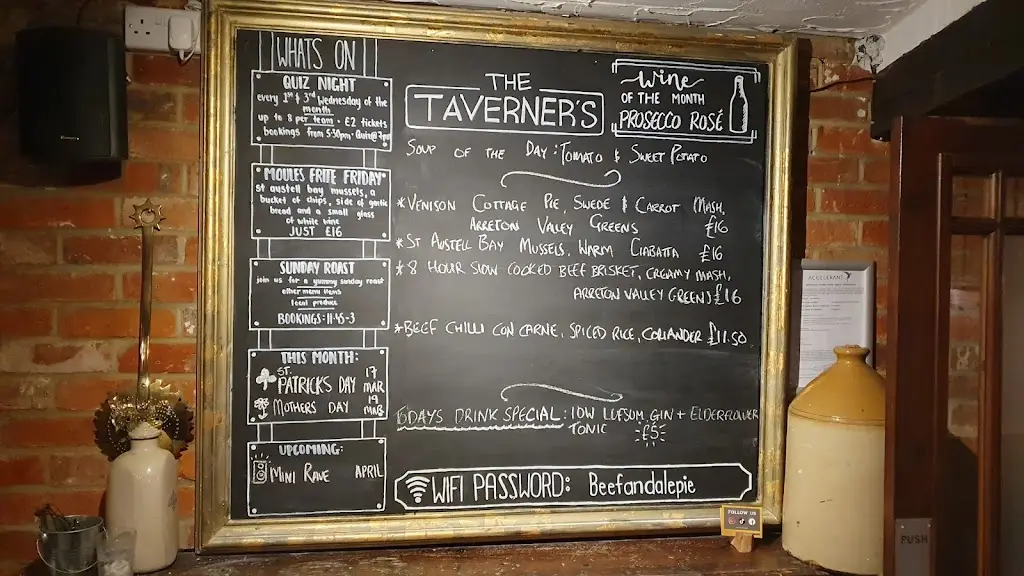 WHATS ON
QUIZ NIGHT
every 1st & 3rd Wednesday of the
month
up to 8 per team. £2 tickets
bookings from 5:30pm. Quiz@7pm
MOULES FRITE FRIDAY
st austell bay mussels, a
bucket of chips, side of garlic
bread and a small glass
of white wine
JUST £16
SUNDAY ROAST
join us for a yummy sunday roast
other menu items
local produce
BOOKINGS-11:45-3
THIS MONTH:
ST. PATRICKS DAY 17 MAR
MOTHERS DAY 19 MAR
UPCOMING:
MINI RAVE APRIL
THE
TAVERNER'S
wine
OF THE MONTH
PROSECCO ROSÉ
SOUP OF THE DAY: TOMATO & SWEET POTATO
*VENISON COTTAGE PIE, SWEDE & CARROT MASH,
ARRETON VALLEY GREENS £16
*ST AUSTELL BAY MUSSELS, WARM CIABATTA £16
*8 HOUR SLOW COOKED BEEF BRISKET, CREAMY MASH,
ARRETON VALLEY GREENS £16
*BEEF CHILLI CON CARNE, SPICED RICE, CORIANDER £11.50
TODAYS DRINK SPECIAL: IOW GIN + ELDERFLOWER
TONIC £5
WIFI PASSWORD: Beefandalepie
FOLLOW US
PUSH